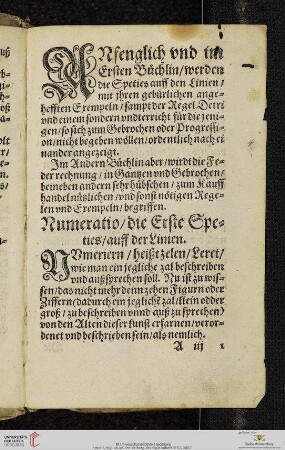 ANfenglich vnd im
Ersten Büchlin/werden
die Speties auff den Linien/
mit jhren gebürlichen ange-
hefften Exempeln/sampt der Regel Detri
vnd einem sondern vndterricht für die jeni-
gen/so sich zum Gebrochen oder Progressi-
on/nicht begeben wöllen/ordenlich nach ei
nander angezeigt.
Im Andern Büchlin aber/wirdt die Fe-
der rechnung/in Gantzen vnd Gebrochen/
beineben andern sehr hübschen/zum Kauff
handel nützlichen/vnd sonst nötigen Rege-
len vnd Exempeln/begriffen.
Numeratio/die Erste Spe-
ties/auff der Linien.
NVmeriern/heißt zelen/Leret/
wie man ein jegliche zal beschreiben
vnd außsprechen soll. Nu ist zu wis-
sen/das nicht mehr denn zehen Figurn oder
Ziffern (dadurch ein jegliche zal/klein odder
groß/zu beschreiben vnnd auß zu sprechen)
von den Alten dieser kunst erfarnen/veror-
denet vnd beschrieben sein/als nemlich.
A iij 1